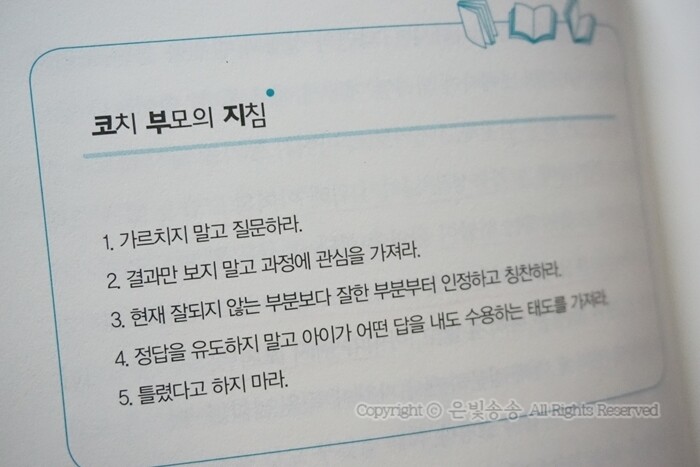 코치 부모의 지침
1. 가르치지 말고 질문하라.
2. 결과만 보지 말고 과정에 관심을 가져라.
3. 현재 잘되지 않는 부분보다 잘한 부분부터 인정하고 칭찬하라.
4. 정답을 유도하지 말고 아이가 어떤 답을 내도 수용하는 태도를 가져라.
5. 틀렸다고 하지 마라.
Copyright © 은빛송송 All Rights Reserved